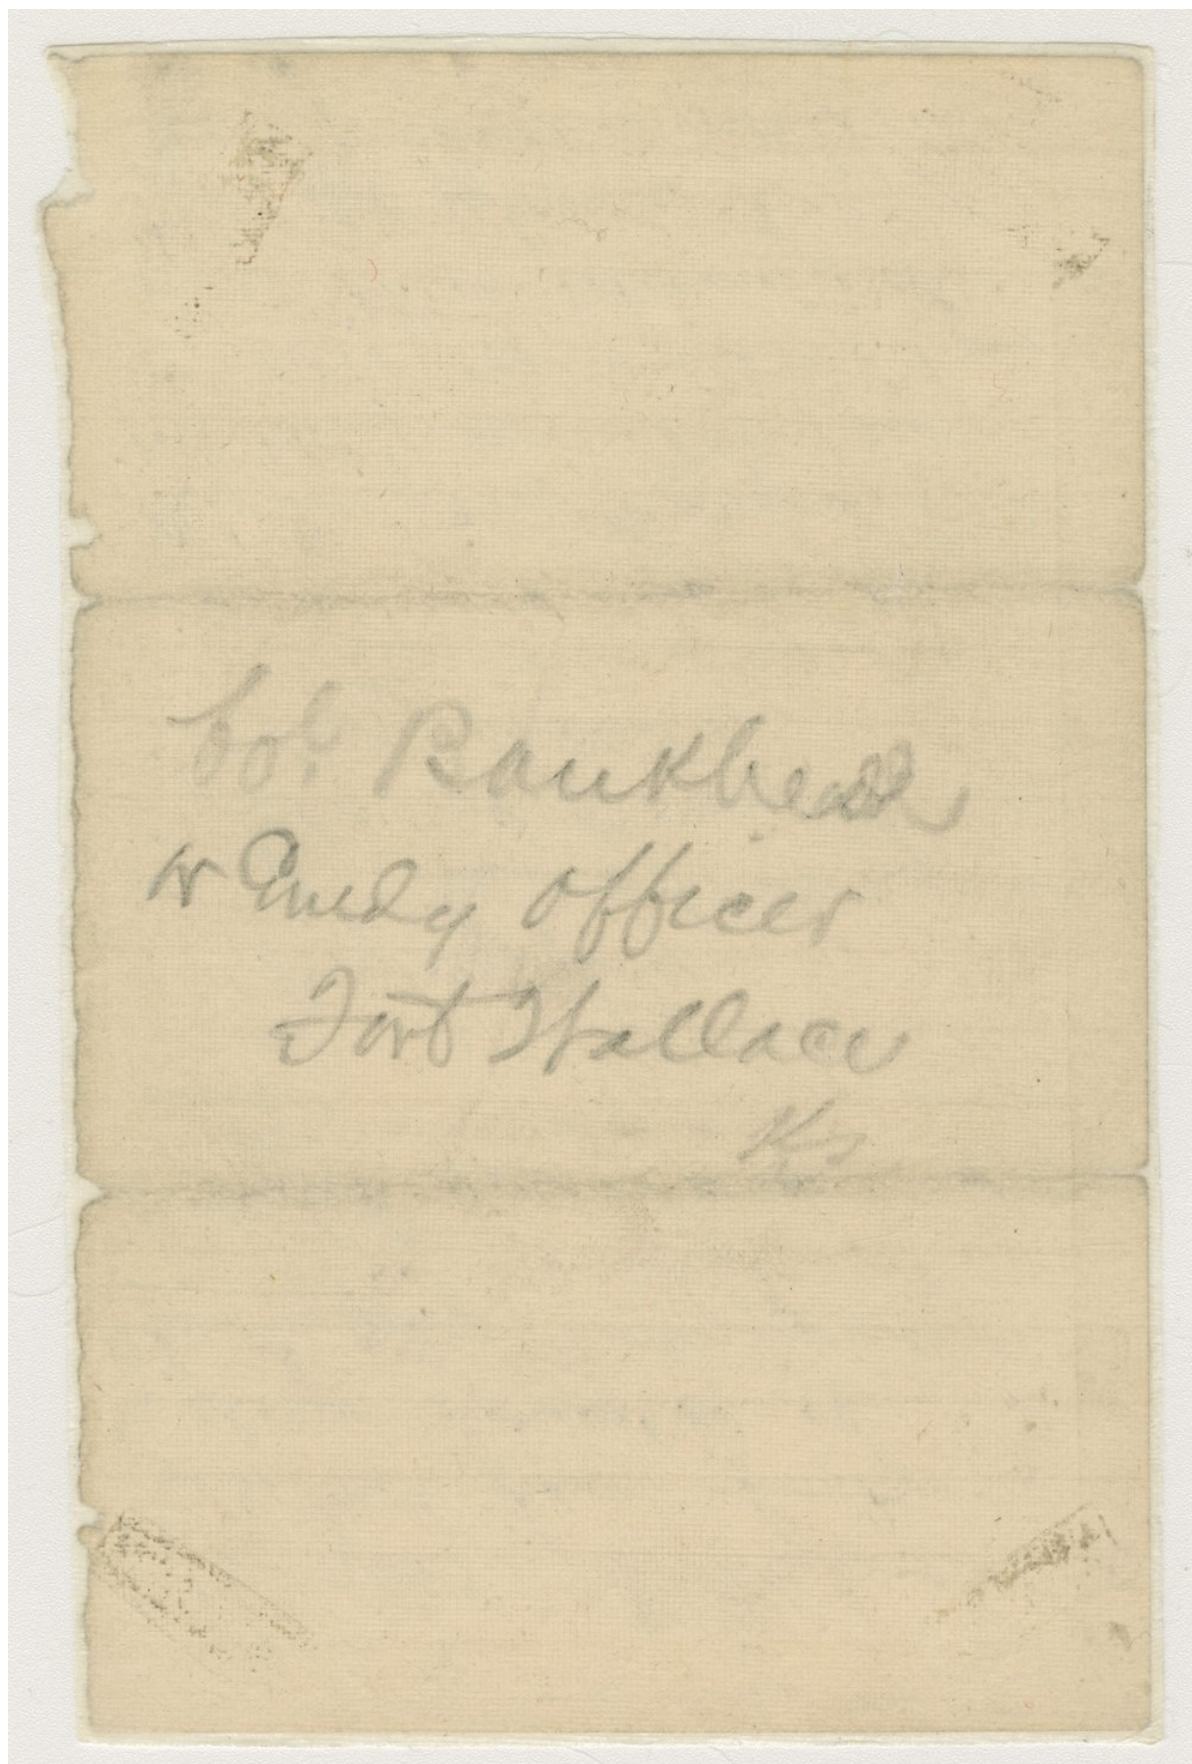 Col Bankhead
or Comdg Officer
Fort Wallace
Ks